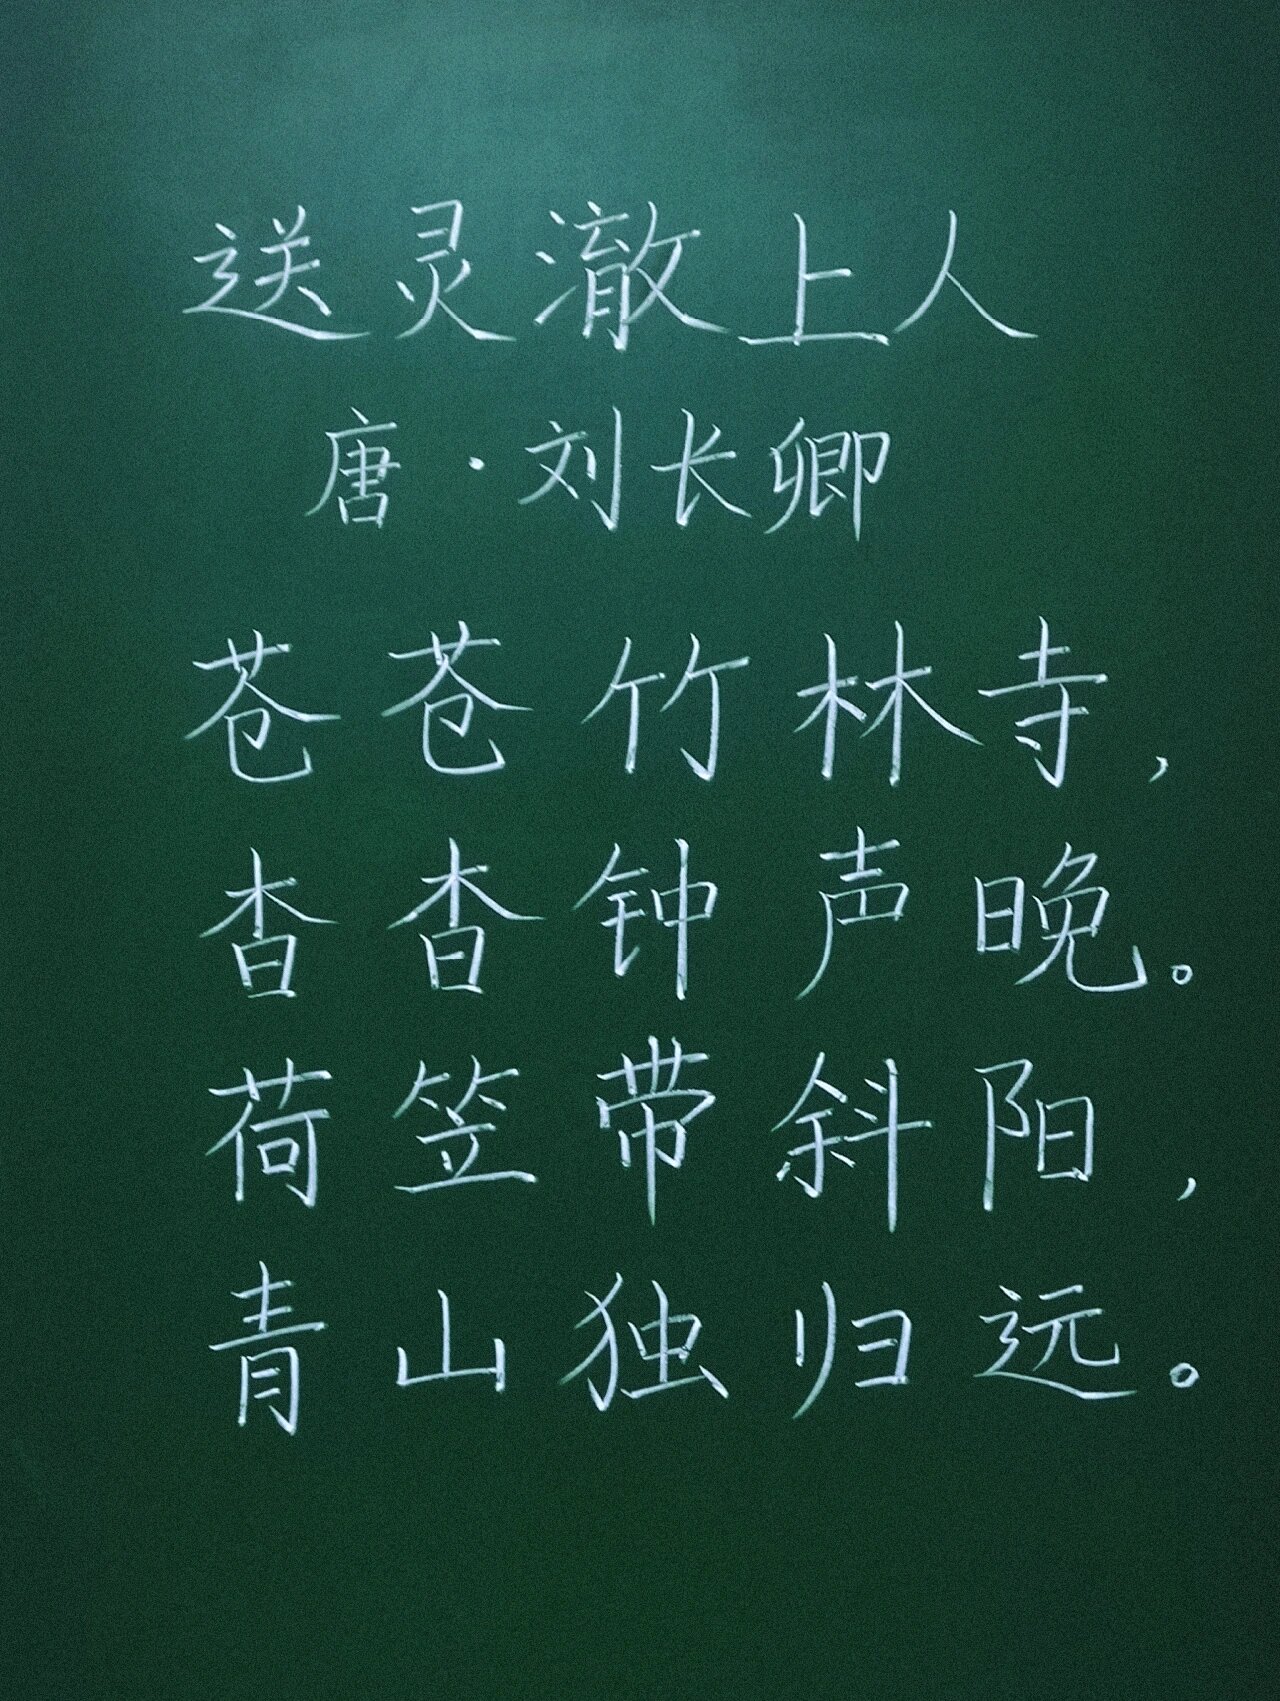 送灵澈上人
唐·刘长卿
苍苍竹林寺，
杳杳钟声晚。
荷笠带斜阳，
青山独归远。